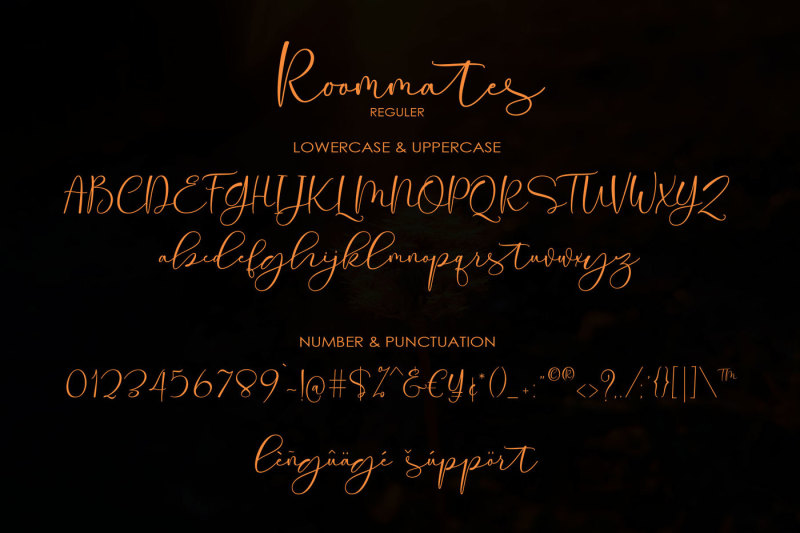 Roommates
REGULER
LOWERCASE & UPPERCASE
ABCDEFGHIJKLMNOPQRSTUVWXYZ
abcdefghijklmnopqrstuvwxyz
NUMBER & PUNCTUATION
0123456789`~!@#$%^&€¥¢*()_+:"©®<>?,./;'{}[|]\™
lëñgûägé šúppört